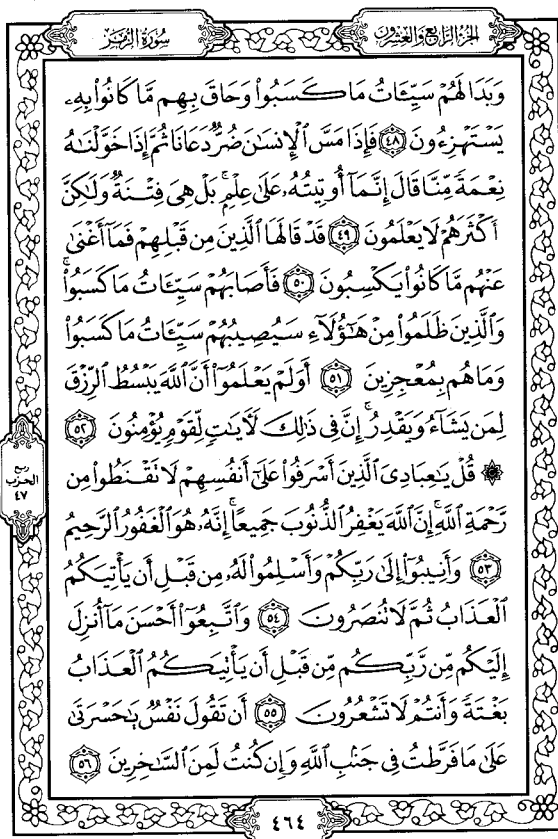 سُورَةُ الزُّمَرِ
الجُزْءُ الرَّابِعُ وَالعِشْرُونَ
وَبَدَا لَهُمْ سَيِّـَٔاتُ مَا كَسَبُوا۟ وَحَاقَ بِهِم مَّا كَانُوا۟ بِهِۦ
يَسْتَهْزِءُونَ ٤٨ فَإِذَا مَسَّ ٱلْإِنسَٰنَ ضُرٌّ دَعَانَا ثُمَّ إِذَا خَوَّلْنَٰهُ
نِعْمَةً مِّنَّا قَالَ إِنَّمَآ أُوتِيتُهُۥ عَلَىٰ عِلْمٍۭ ۚ بَلْ هِىَ فِتْنَةٌ وَلَٰكِنَّ
أَكْثَرَهُمْ لَا يَعْلَمُونَ ٤٩ قَدْ قَالَهَا ٱلَّذِينَ مِن قَبْلِهِمْ فَمَآ أَغْنَىٰ
عَنْهُم مَّا كَانُوا۟ يَكْسِبُونَ ٥٠ فَأَصَابَهُمْ سَيِّـَٔاتُ مَا كَسَبُوا۟ ۚ
وَٱلَّذِينَ ظَلَمُوا۟ مِنْ هَٰٓؤُلَآءِ سَيُصِيبُهُمْ سَيِّـَٔاتُ مَا كَسَبُوا۟
وَمَا هُم بِمُعْجِزِينَ ٥١ أَوَلَمْ يَعْلَمُوٓا۟ أَنَّ ٱللَّهَ يَبْسُطُ ٱلرِّزْقَ
لِمَن يَشَآءُ وَيَقْدِرُ ۚ إِنَّ فِى ذَٰلِكَ لَءَايَٰتٍ لِّقَوْمٍ يُؤْمِنُونَ ٥٢
۞ قُلْ يَٰعِبَادِىَ ٱلَّذِينَ أَسْرَفُوا۟ عَلَىٰٓ أَنفُسِهِمْ لَا تَقْنَطُوا۟ مِن
رَّحْمَةِ ٱللَّهِ ۚ إِنَّ ٱللَّهَ يَغْفِرُ ٱلذُّنُوبَ جَمِيعًا ۚ إِنَّهُۥ هُوَ ٱلْغَفُورُ ٱلرَّحِيمُ
٥٣ وَأَنِيبُوٓا۟ إِلَىٰ رَبِّكُمْ وَأَسْلِمُوا۟ لَهُۥ مِن قَبْلِ أَن يَأْتِيَكُمُ
ٱلْعَذَابُ ثُمَّ لَا تُنصَرُونَ ٥٤ وَٱتَّبِعُوٓا۟ أَحْسَنَ مَآ أُنزِلَ
إِلَيْكُم مِّن رَّبِّكُم مِّن قَبْلِ أَن يَأْتِيَكُمُ ٱلْعَذَابُ
بَغْتَةً وَأَنتُمْ لَا تَشْعُرُونَ ٥٥ أَن تَقُولَ نَفْسٌ يَٰحَسْرَتَىٰ
عَلَىٰ مَا فَرَّطتُ فِى جَنۢبِ ٱللَّهِ وَإِن كُنتُ لَمِنَ ٱلسَّٰخِرِينَ ٥٦
ربع
الحزب
٤٧
٤٦٤